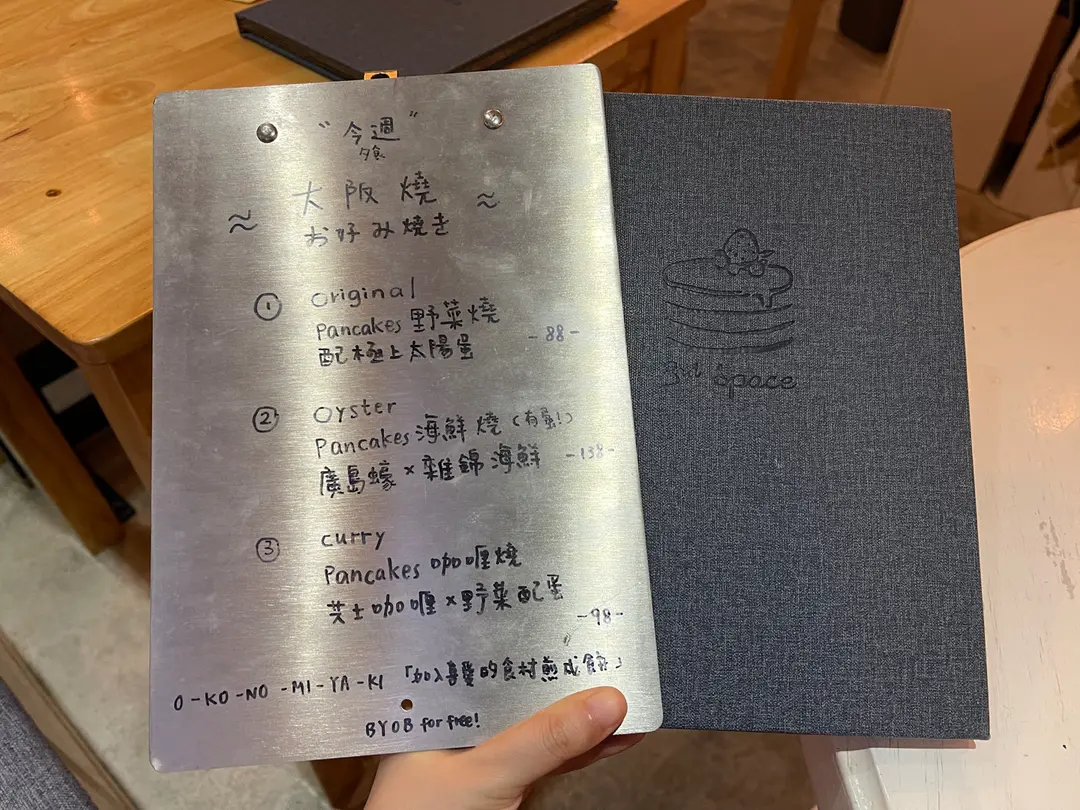 "今週"
夕食
≈ 大阪燒 ≈
お好み燒き
① original
Pancakes 野菜燒
配極上太陽蛋 -88-
② oyster
Pancakes 海鮮燒 (有蛋!)
廣島蠔 × 雜錦海鮮 -138-
③ curry
Pancakes 咖喱燒
芝士咖喱 × 野菜配蛋
-98-
O-KO-NO-MI-YA-KI 「加入喜愛的食材煎成餅」
BYOB for free!
3rd Space